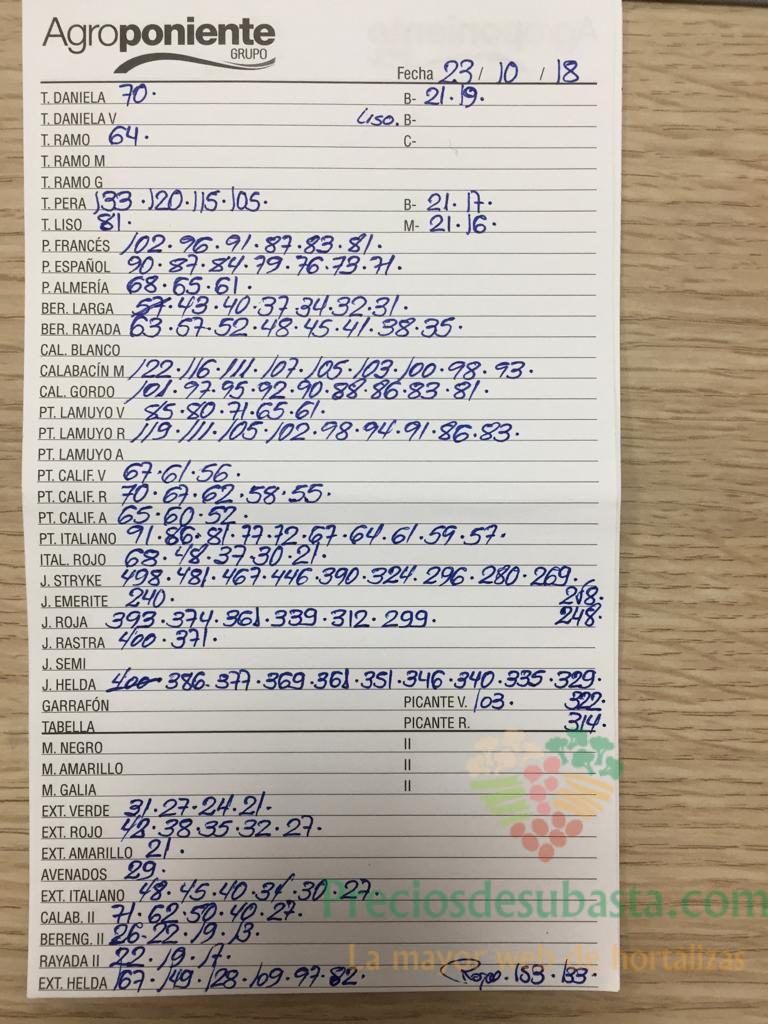 Agroponiente
GRUPO
Fecha 23 / 10 / 18
T. DANIELA 70· B- 21·19·
T. DANIELA V Liso. B-
T. RAMO 64· C-
T. RAMO M
T. RAMO G
T. PERA 133·120·115·105· B- 21·17·
T. LISO 81· M- 21·16·
P. FRANCÉS 102·96·91·87·83·81·
P. ESPAÑOL 90·87·84·79·76·73·71·
P. ALMERÍA 68·65·61·
BER. LARGA 57·43·40·37·34·32·31·
BER. RAYADA 63·67·52·48·45·41·38·35·
CAL. BLANCO
CALABACÍN M 122·116·111·107·105·103·100·98·93·
CAL. GORDO 101·97·95·92·90·88·86·83·81·
PT. LAMUYO V 85·80·71·65·61·
PT. LAMUYO R 119·111·105·102·98·94·91·86·83·
PT. LAMUYO A
PT. CALIF. V 67·61·56·
PT. CALIF. R 70·67·62·58·55·
PT. CALIF. A 65·60·52·
PT. ITALIANO 91·86·81·77·72·67·64·61·59·57·
ITAL. ROJO 68·48·37·30·21·
J. STRYKE 498·481·467·446·390·324·296·280·269·
J. EMERITE 240· 258·
J. ROJA 393·374·361·339·312·299· 248·
J. RASTRA 400·371·
J. SEMI
J. HELDA 400 386·377·369·361·351·346·340·335·329·
GARRAFÓN PICANTE V. 103· 322·
TABELLA PICANTE R. 314·
M. NEGRO II
M. AMARILLO II
M. GALIA II
EXT. VERDE 31·27·24·21·
EXT. ROJO 42·38·35·32·27·
EXT. AMARILLO 21·
AVENADOS 29·
EXT. ITALIANO 48·45·40·34·30·27·
CALAB. II 71·62·50·40·27·
BERENG. II 26·22·19·13·
RAYADA II 22·19·17·
EXT. HELDA 167·149·128·109·97·82· Roja·153·133·
Preciosdesubasta.com
La mayor web de hortalizas